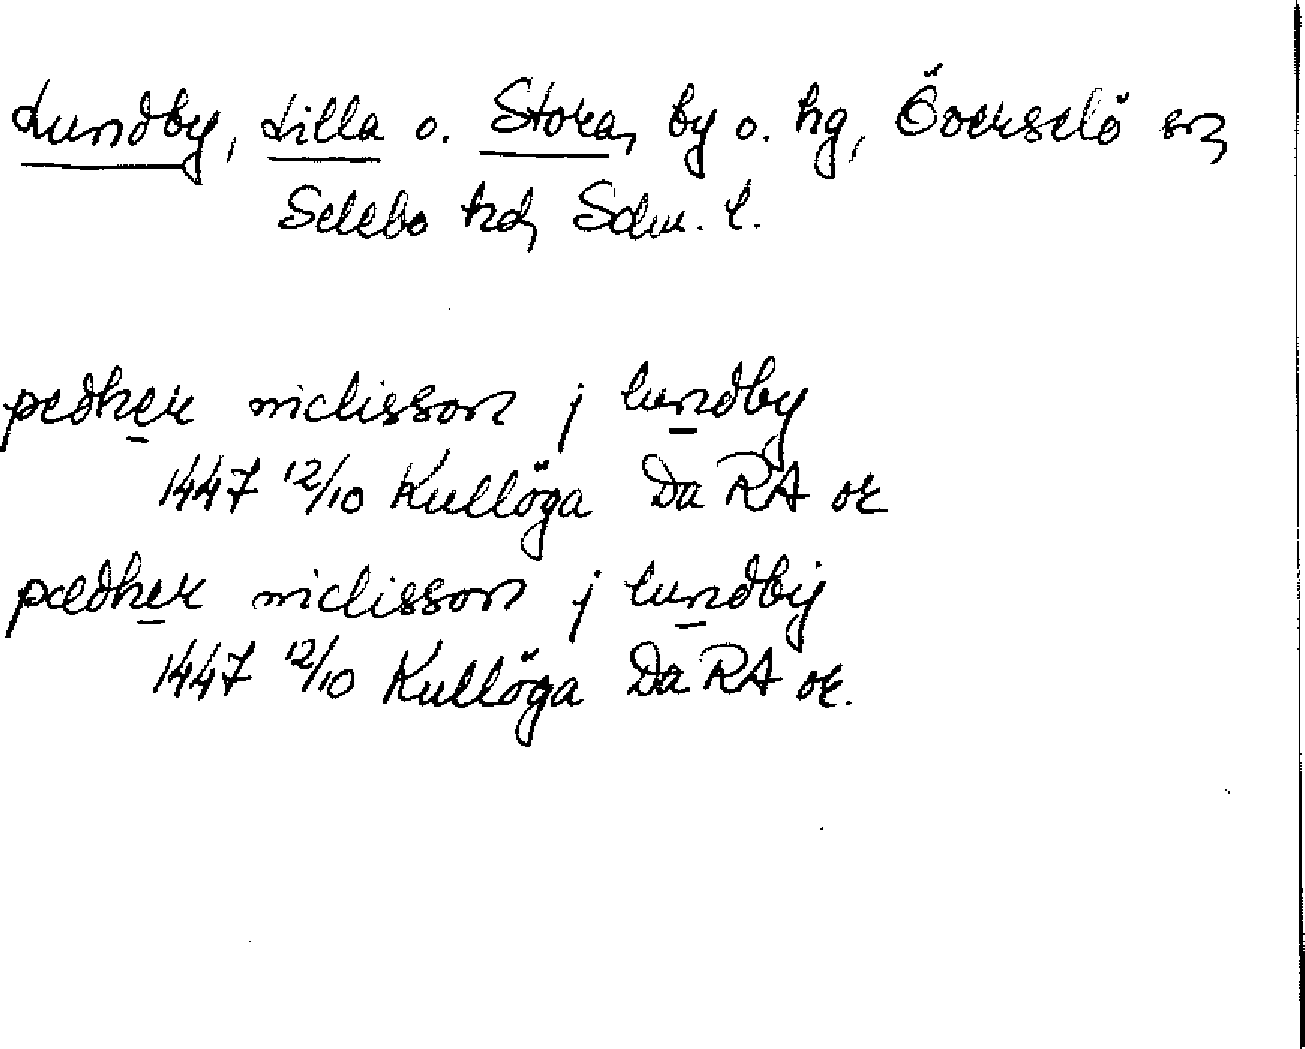 Lundby, Lilla o. Stora, by o. hg, Överselö sn,
Selebo hd, Södm. l.
pedher niclisson j lundby
1447 12/10 Kullöga Da RA or
pædher niclisson j lundbÿ
1447 12/10 Kullöga Da RA or.